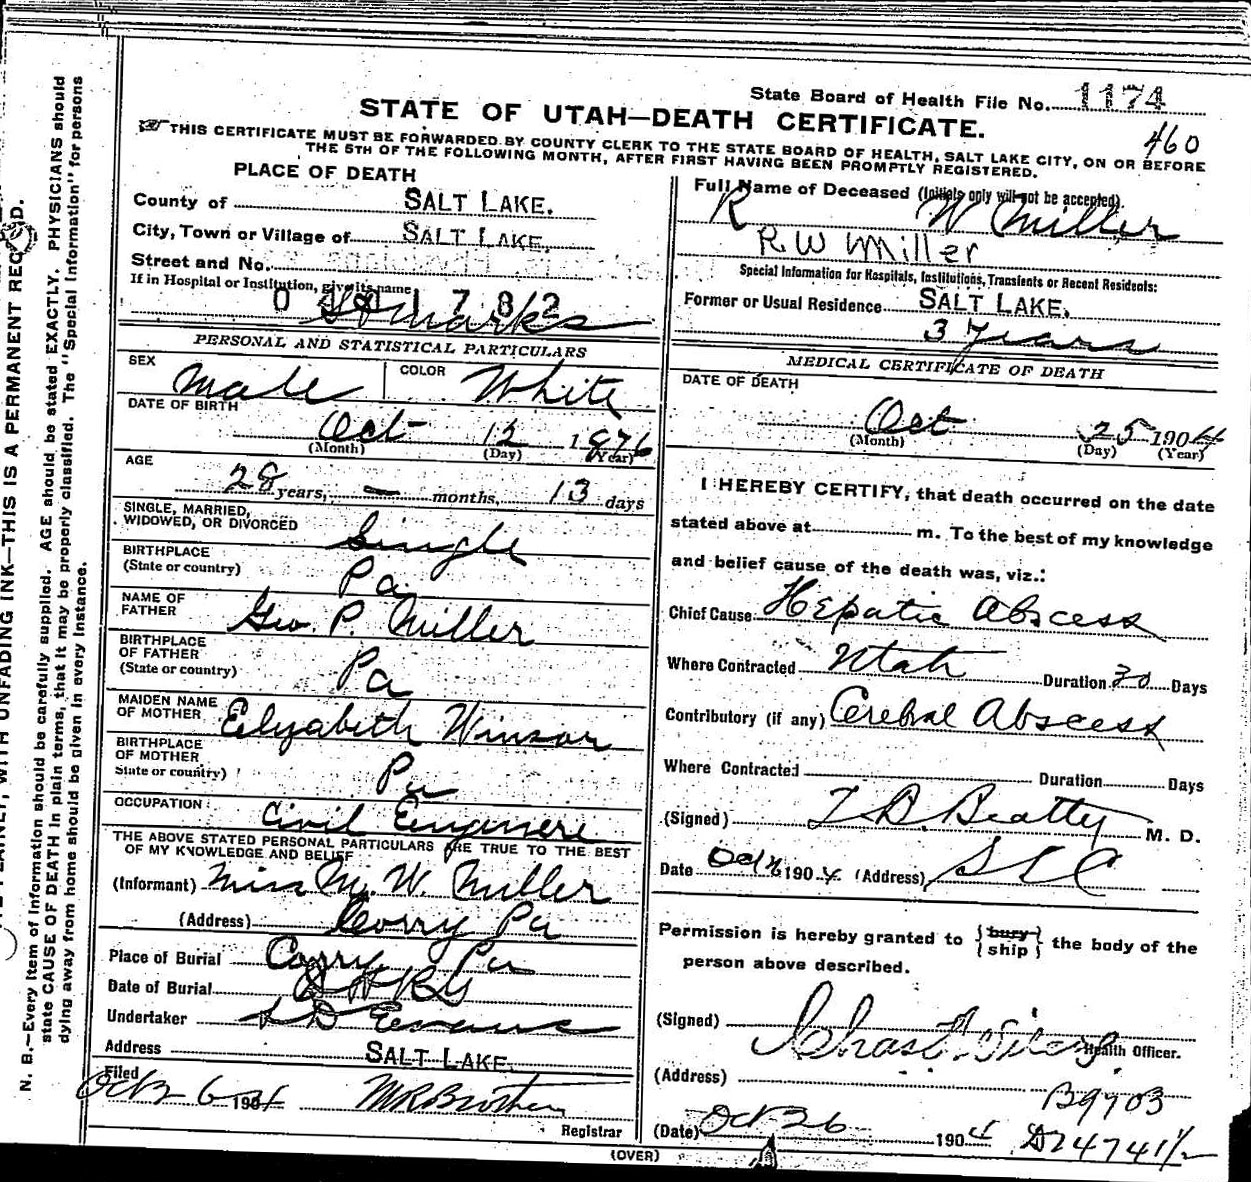 State Board of Health File No. 1174
STATE OF UTAH—DEATH CERTIFICATE.
460
THIS CERTIFICATE MUST BE FORWARDED BY COUNTY CLERK TO THE STATE BOARD OF HEALTH, SALT LAKE CITY, ON OR BEFORE
THE 5TH OF THE FOLLOWING MONTH, AFTER FIRST HAVING BEEN PROMPTLY REGISTERED.
PLACE OF DEATH
County of SALT LAKE.
City, Town or Village of SALT LAKE.
Street and No.
If in Hospital or Institution, give its name
St Marks
PERSONAL AND STATISTICAL PARTICULARS
SEX Male COLOR White
DATE OF BIRTH
Oct 12 1876
(Month) (Day) (Year)
AGE
28 years, — months, 13 days
SINGLE, MARRIED,
WIDOWED, OR DIVORCED Single
BIRTHPLACE
(State or country) Pa
NAME OF
FATHER Geo. P. Miller
BIRTHPLACE
OF FATHER
(State or country) Pa
MAIDEN NAME
OF MOTHER Elyabeth Winsor
BIRTHPLACE
OF MOTHER
State or country) Pa
OCCUPATION Civil Engineer
THE ABOVE STATED PERSONAL PARTICULARS ARE TRUE TO THE BEST
OF MY KNOWLEDGE AND BELIEF
(Informant) Miss M. W. Miller
(Address) Corry Pa
Place of Burial Corry Pa
Date of Burial
Undertaker S D Evans
Address SALT LAKE.
Filed
Oct 26 1904
Registrar
Full Name of Deceased (Initials only will not be accepted).
R W Miller
R.W Miller
Special Information for Hospitals, Institutions, Transients or Recent Residents:
Former or Usual Residence SALT LAKE.
3 years
MEDICAL CERTIFICATE OF DEATH
DATE OF DEATH
Oct 25 1904
(Month) (Day) (Year)
I HEREBY CERTIFY, that death occurred on the date
stated above at m. To the best of my knowledge
and belief cause of the death was, viz.:
Chief Cause Hepatic Abscess
Where Contracted Utah Duration 30 Days
Contributory (if any) Cerebral Abscess
Where Contracted Duration Days
(Signed) T B. Beatty M. D.
Date Oct 1904 (Address) SLC
Permission is hereby granted to { bury ship } the body of the
person above described.
(Signed) Health Officer.
(Address)
B9703
(Date) Oct 26 1904 D24741½
(OVER)
N. B.—Every item of information should be carefully supplied. AGE should be stated EXACTLY. PHYSICIANS should
state CAUSE OF DEATH in plain terms, that it may be properly classified. The "Special Information" for persons
dying away from home should be given in every instance.
WITH UNFADING INK—THIS IS A PERMANENT RECORD.